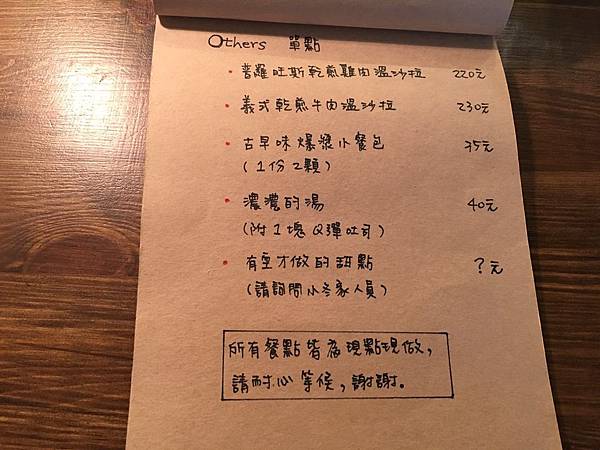 Others 單點
• 普羅旺斯乾煎雞肉溫沙拉 220元
• 義式乾煎牛肉溫沙拉 230元
• 古早味爆漿小餐包 35元
(1份2顆)
• 濃濃的湯 40元
(附1塊Q彈吐司)
• 有空才做的甜點 ?元
(請詢問小冬家人員)
所有餐點皆為現點現做,
請耐心等候,謝謝。